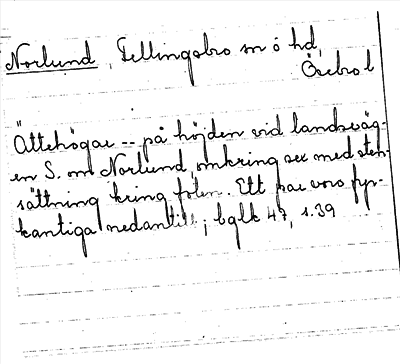 Norlund, Fellingsbro sn o hd,
Örebro l
Ättehögar -- på höjden vid landsväg-
en S. om Norlund, omkring sex med sten-
sättning kring foten. Ett par voro fyr-
kantiga nedantill; bglk 47, s. 39